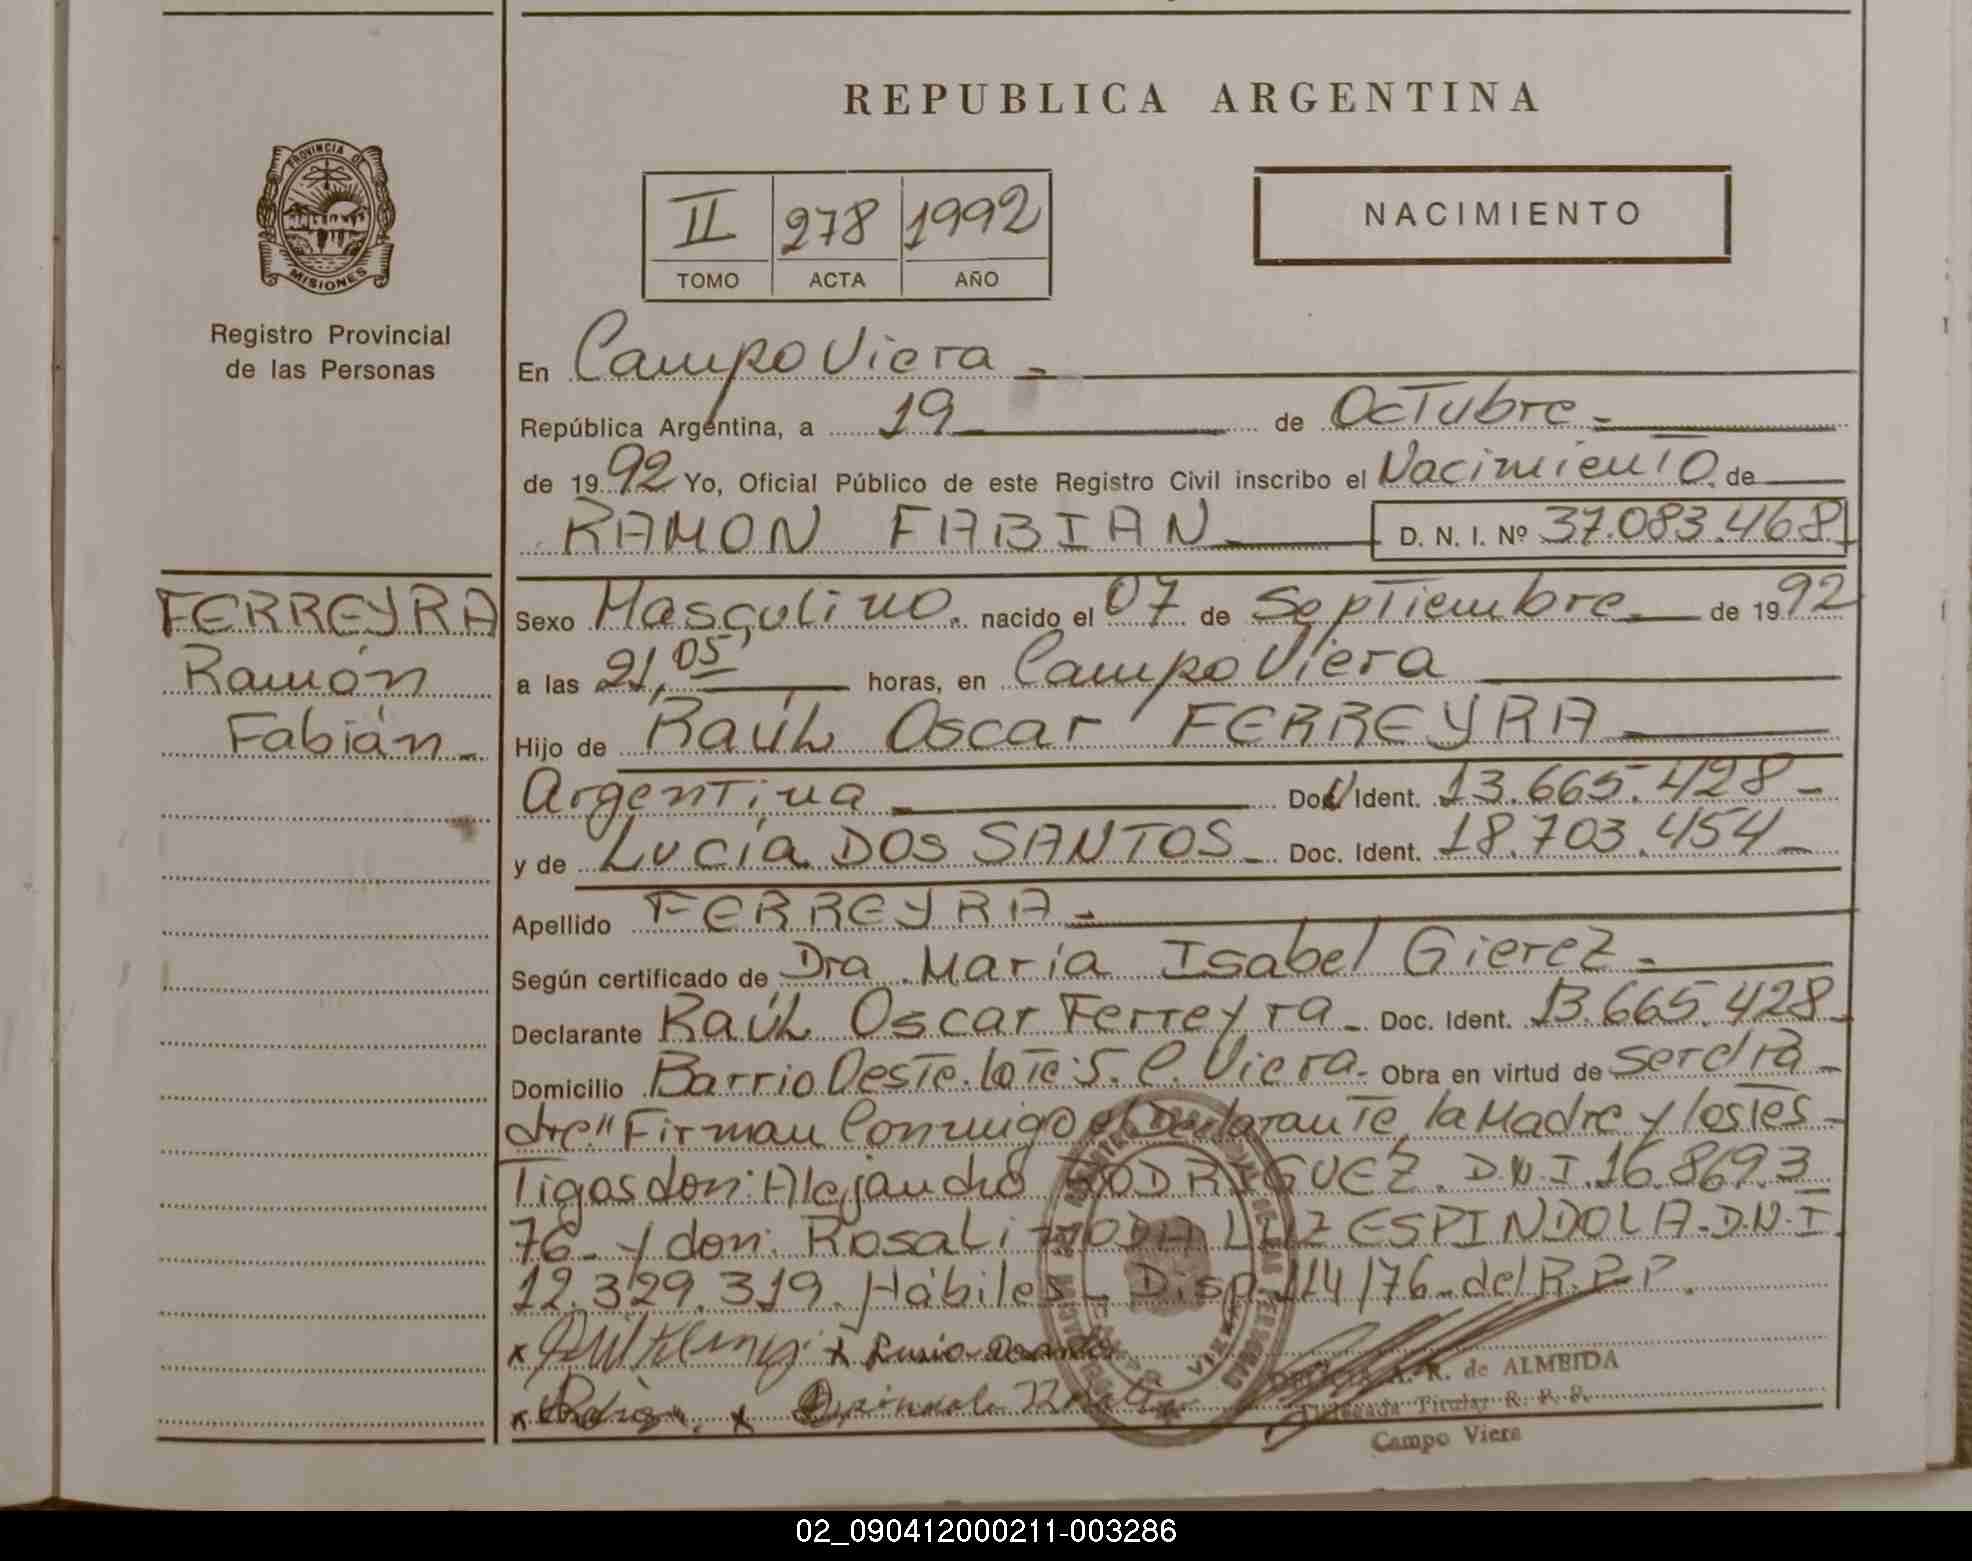 REPUBLICA ARGENTINA
PROVINCIA DE
MISIONES
Registro Provincial
de las Personas
II 278 1992
TOMO ACTA AÑO
NACIMIENTO
En Campo Viera -
República Argentina, a 19 de Octubre -
de 19 92 Yo, Oficial Público de este Registro Civil inscribo el Nacimiento de
RAMON FABIAN D. N. I. Nº 37.083.468
FERREYRA
Ramón
Fabián -
Sexo Masculino. nacido el 07 de Septiembre de 19 92
a las 21,05' horas, en Campo Viera
Hijo de Raúl Oscar FERREYRA
Argentina Doc. Ident. 13.665.428 -
y de Lucía DOS SANTOS - Doc. Ident. 18.703.454 -
Apellido FERREYRA -
Según certificado de Dra. María Isabel Gierez -
Declarante Raúl Oscar Ferreyra - Doc. Ident. 13.665.428 -
Domicilio Barrio Oeste. lote: 5. C. Viera. Obra en virtud de ser el pa -
dre" Firman Conmigo el Declarante, la Madre y los tes -
Tigos don: Alejandro RODRIGUEZ. D.N.I. 16.869.3
76 - y don: Rosalino DA LUZ ESPINDOLA. D.N.I.
12.329.319. Hábiles - Disp. 114/76 - del R.P.P.
x x
x x
A. R. de ALMEIDA
Delegada Titular R. P. P.
Campo Viera
02_090412000211-003286